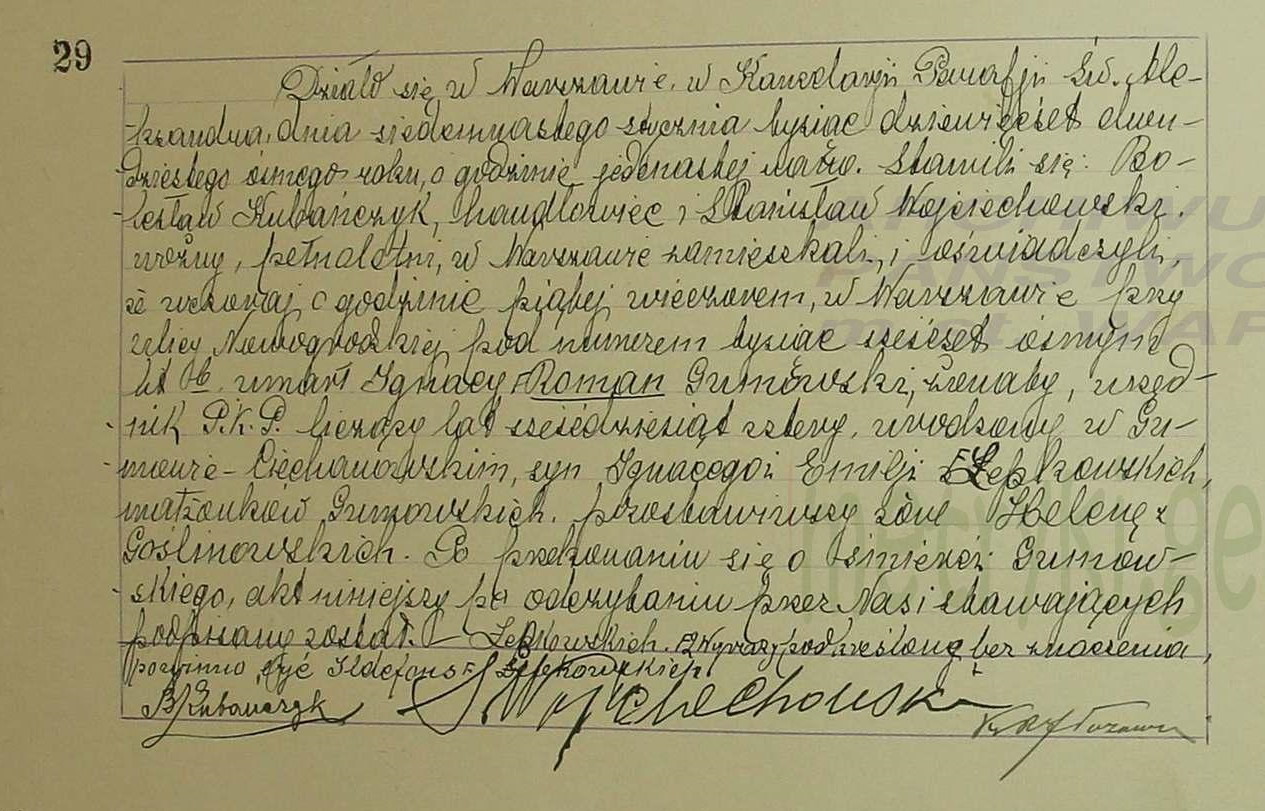 29
Działo się w Warszawie, w Kancelarji Parafji Św. Ale-
ksandra, dnia siedemnastego stycznia tysiąc dziewięćset dwu-
dziestego ósmego roku, o godzinie jedenastej rano. Stawili się: Bo-
lesław Kubańczyk, handlowiec i Stanisław Wojciechowski,
woźny, pełnoletni, w Warszawie zamieszkali, i oświadczyli,
że wczoraj o godzinie piątej wieczorem, w Warszawie przy
ulicy Nowogrodzkiej pod numerem tysiąc sześćset ósmym
lit umarł Ignacy-Roman Gumowski, żonaty, urzęd-
nik P.K.P. liczący lat sześćdziesiąt cztery, urodzony w Gu-
mowie-Ciechanowskim, syn Ignacego i Emilji z Łępkowskich,
małżonków Gumowskich, pozostawiwszy żonę Helenę z
Goślinowskich. Po przekonaniu się o śmierci Gumow-
skiego, akt niniejszy po odczytaniu przez Nas i stawających
podpisany został. Łępkowskich. 2 Wyrazy podkreślone bez znaczenia,
powinno być Ildefons Łępkowskich
B Kubańczyk S Wojciechowski
APCHIWU
PAŃSTWO
m.st. WAR
metryki.ge